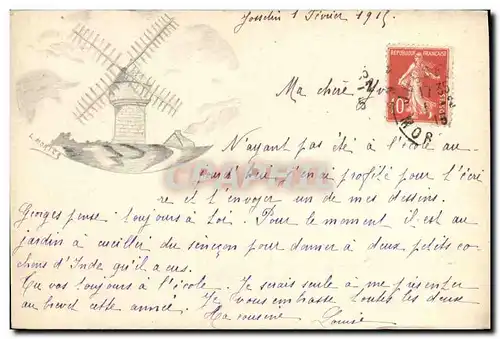 Josselin 1 Février 1915
Ma chère
RÉPUBLIQUE FRANÇAISE
10
POSTES
MOR
N'ayant pas été à l'école au
j'en ai profité pour t'écri
re et t'envoyer un de mes dessins.
Georges pense toujours à toi. Pour le moment il est au
jardin à cueillir du séneçon pour donner à deux petits co
chons d'Inde qu'il a eus.
Tu vas toujours à l'école. Je serais seule à me présenter
au brevet cette année. Je vous embrasse toutes les deux
Ta cousine Louise